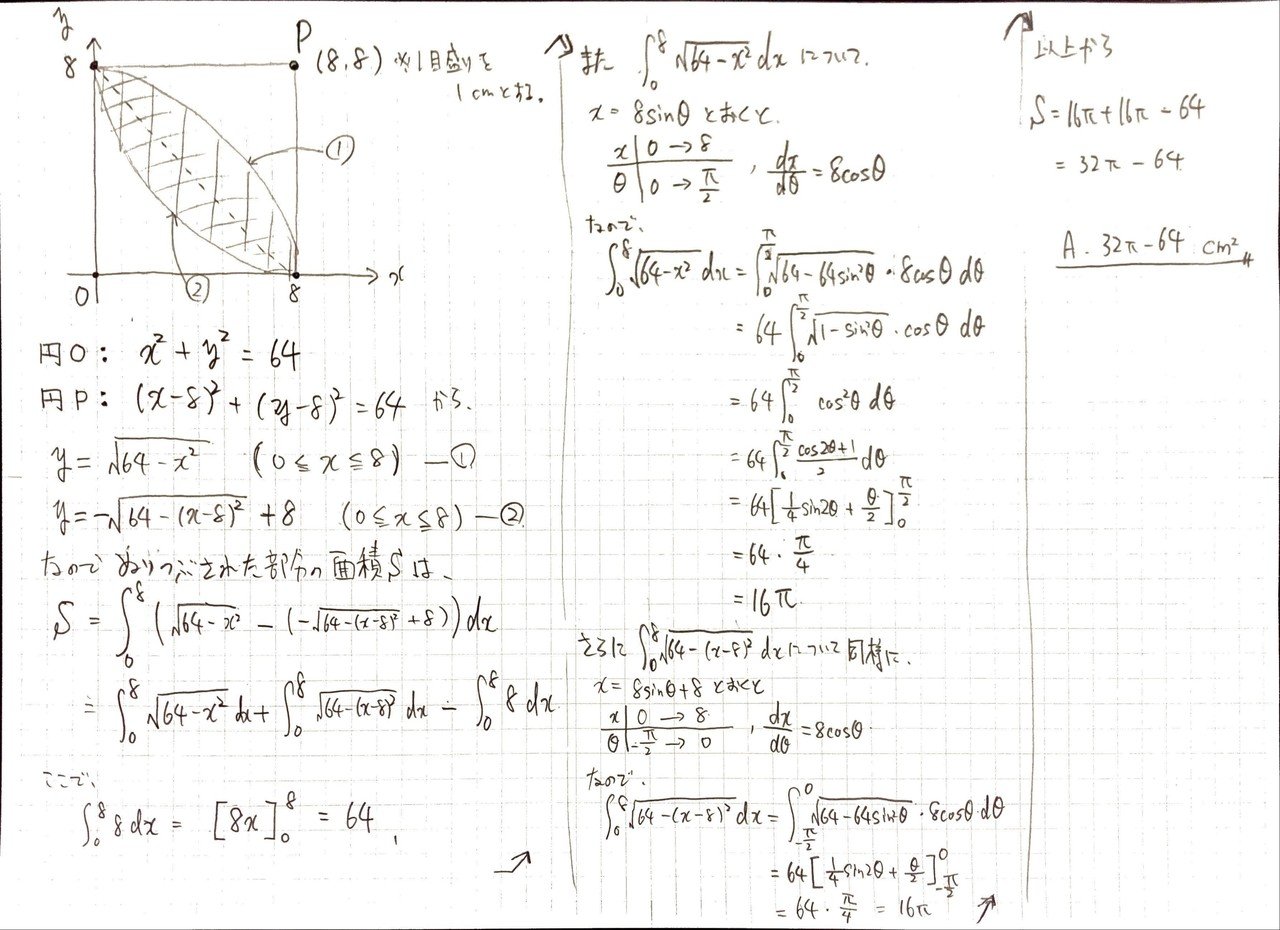 y
P
8
(8,8) ※1目盛りを
1cmとする。
①
0
②
8
x
円O: x² + y² = 64
円P: (x-8)² + (y-8)² = 64 から、
y = √(64-x²) (0 ≦ x ≦ 8) ―①
y = -√(64-(x-8)²) + 8 (0 ≦ x ≦ 8) ―②
なので ぬりつぶされた部分の面積Sは、
S = ∫₀⁸ (√(64-x²) - (-√(64-(x-8)²) + 8)) dx
= ∫₀⁸ √(64-x²) dx + ∫₀⁸ √(64-(x-8)²) dx - ∫₀⁸ 8 dx
ここで、
∫₀⁸ 8 dx = [8x]₀⁸ = 64、
また ∫₀⁸ √(64-x²) dx について、
x = 8sinθ とおくと、
x | 0 → 8
θ | 0 → π/2 , dx/dθ = 8cosθ
なので、
∫₀⁸ √(64-x²) dx = ∫₀^(π/2) √(64-64sin²θ)・8cosθ dθ
= 64 ∫₀^(π/2) √(1-sin²θ)・cosθ dθ
= 64 ∫₀^(π/2) cos²θ dθ
= 64 ∫₀^(π/2) (cos2θ+1)/2 dθ
= 64 [1/4 sin2θ + θ/2]₀^(π/2)
= 64・π/4
= 16π
さらに ∫₀⁸ √(64-(x-8)²) dx について同様に、
x = 8sinθ+8 とおくと
x | 0 → 8
θ | -π/2 → 0 , dx/dθ = 8cosθ
なので、
∫₀⁸ √(64-(x-8)²) dx = ∫_(-π/2)^0 √(64-64sin²θ)・8cosθ・dθ
= 64 [1/4 sin2θ + θ/2]_(-π/2)^0
= 64・π/4 = 16π
以上から
S = 16π + 16π - 64
= 32π - 64
A. 32π - 64 cm²